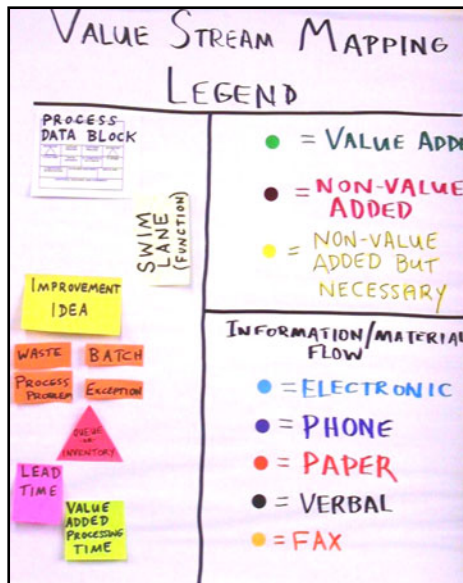 VALUE STREAM MAPPING
LEGEND
PROCESS
DATA BLOCK
SWIM
LANE
(FUNCTION)
IMPROVEMENT
IDEA
WASTE
BATCH
PROCESS
PROBLEM
EXCEPTION
QUEUE
INVENTORY
LEAD
TIME
VALUE
ADDED
PROCESSING
TIME
= VALUE ADDE
= NON-VALUE
ADDED
= NON-VALUE
ADDED BUT
NECESSARY
INFORMATION/MATERIAL
FLOW
= ELECTRONIC
= PHONE
= PAPER
= VERBAL
= FAX